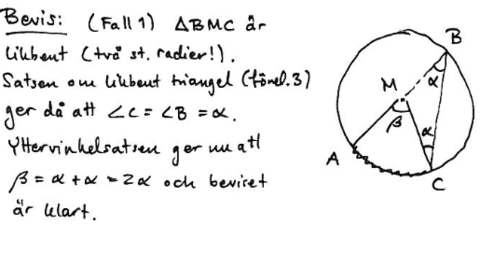 Bevis: (Fall 1) △BMC är
likbent (två st. radier!).
Satsen om likbent triangel (förel. 3)
ger då att ∠C = ∠B = α.
Yttervinkelsatsen ger nu att
β = α + α = 2α och beviset
är klart.
B
α
M
β
α
A
C